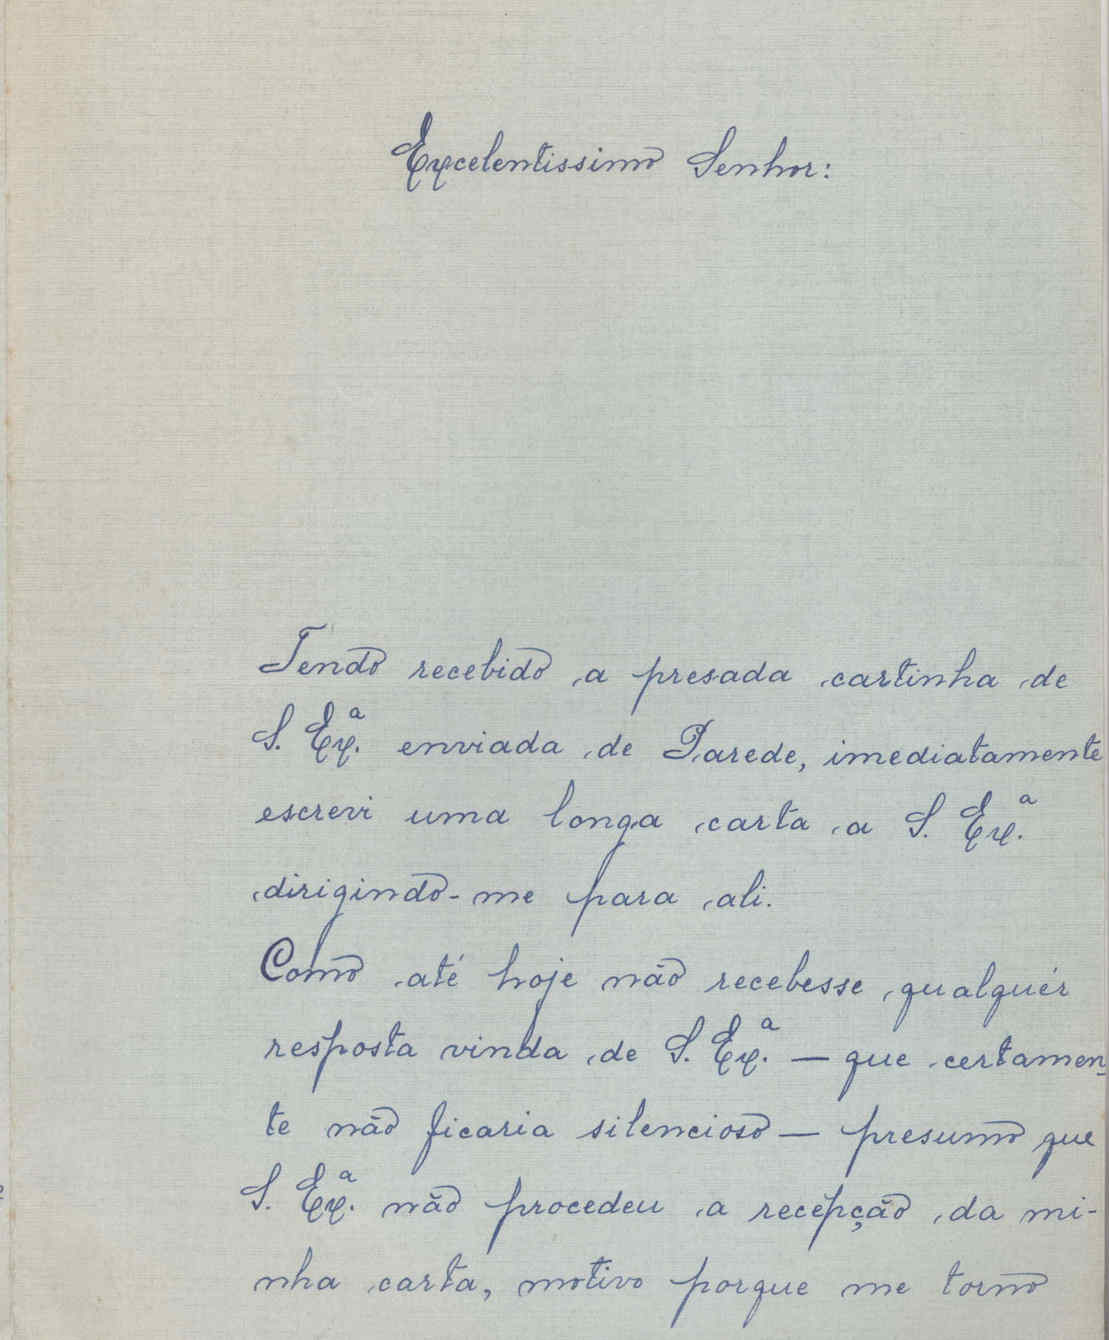 Excelentissimo Senhor:
Tendo recebido a presada cartinha de
S. Ex.ª enviada de Parede, imediatamente
escrevi uma longa carta a S. Ex.ª
dirigindo-me para ali.
Como até hoje não recebesse qualquér
resposta vinda de S. Ex.ª — que certamen-
te não ficaria silencioso — presumo que
S. Ex.ª não procedeu a recépção da mi-
nha carta, motivo porque me torno